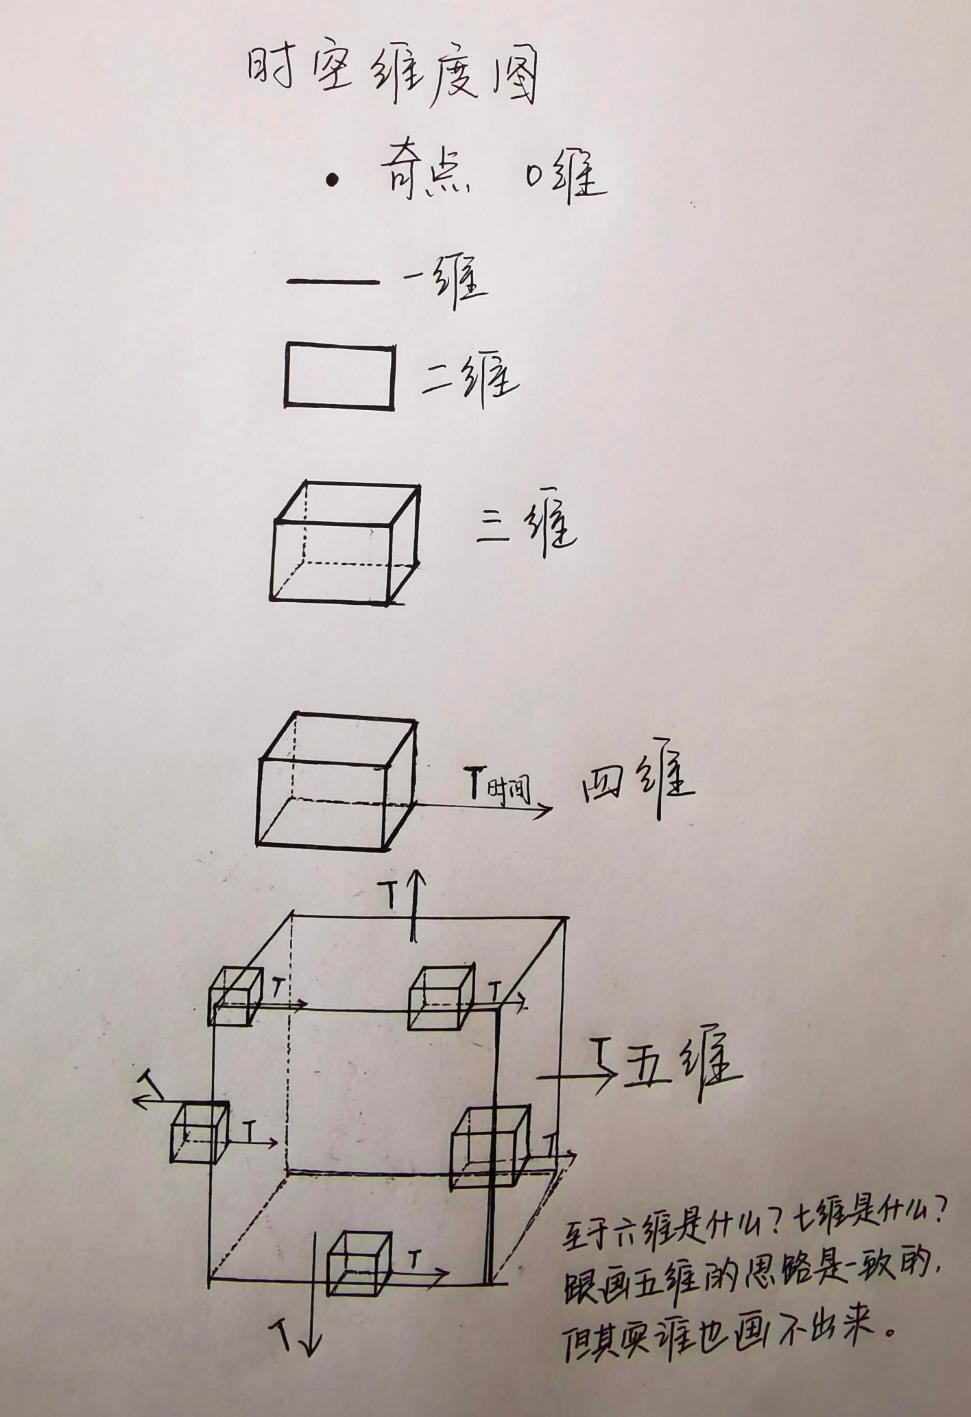 时空维度图
奇点 0维
一维
二维
三维
T时间 四维
T
T T
T 五维
T
T T
T
T
至于六维是什么？七维是什么？
跟画五维的思路是一致的，
但其实谁也画不出来。